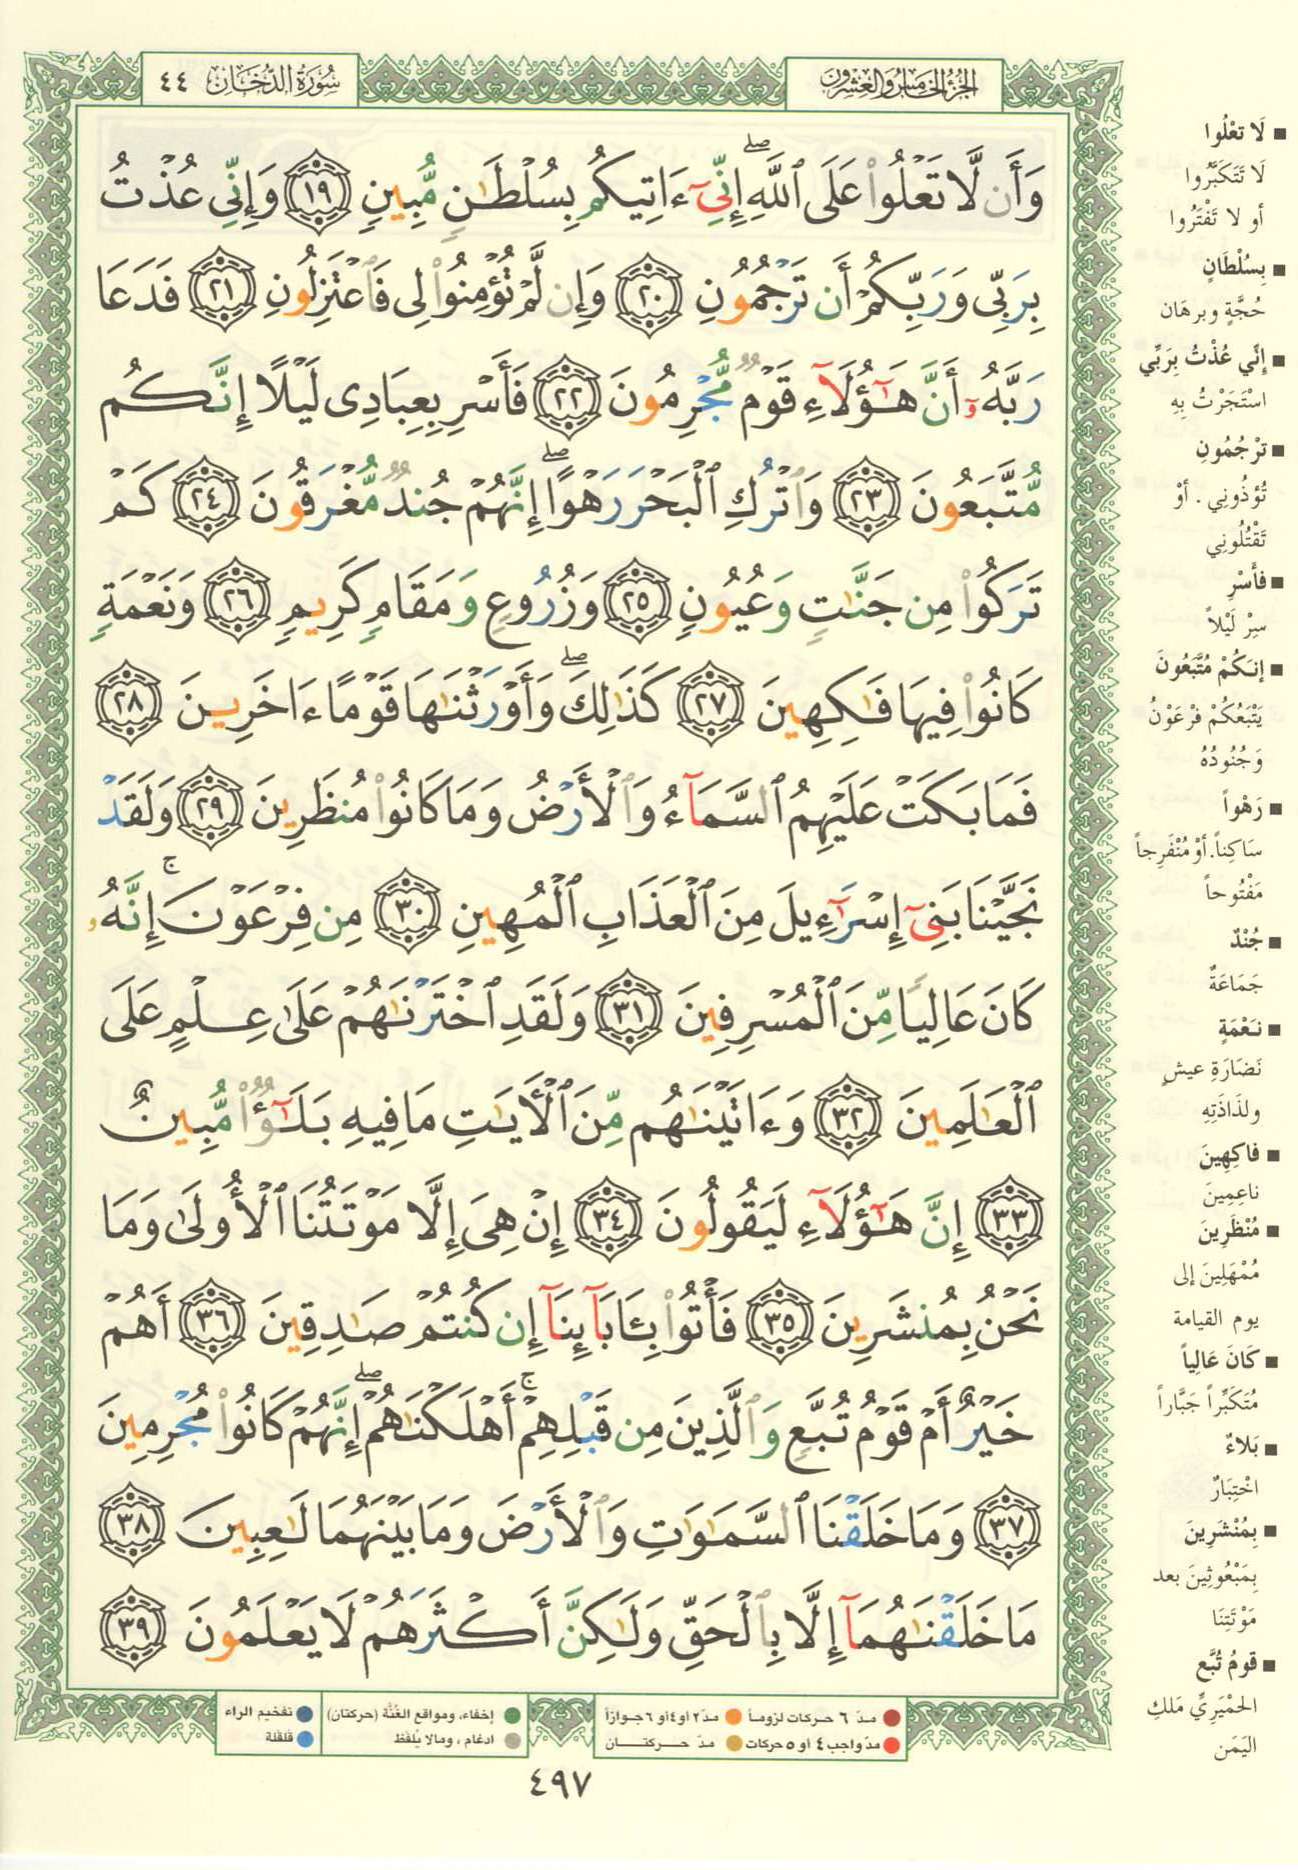 الجزء الخامس والعشرون
سورة الدخان ٤٤
وَأَن لَّا تَعْلُوا۟ عَلَى ٱللَّهِ ۖ إِنِّىٓ ءَاتِيكُم بِسُلْطَـٰنٍ مُّبِينٍ ١٩ وَإِنِّى عُذْتُ
بِرَبِّى وَرَبِّكُمْ أَن تَرْجُمُونِ ٢٠ وَإِن لَّمْ تُؤْمِنُوا۟ لِى فَٱعْتَزِلُونِ ٢١ فَدَعَا
رَبَّهُۥٓ أَنَّ هَـٰٓؤُلَآءِ قَوْمٌ مُّجْرِمُونَ ٢٢ فَأَسْرِ بِعِبَادِى لَيْلًا إِنَّكُم
مُّتَّبَعُونَ ٢٣ وَٱتْرُكِ ٱلْبَحْرَ رَهْوًا ۖ إِنَّهُمْ جُندٌ مُّغْرَقُونَ ٢٤ كَمْ
تَرَكُوا۟ مِن جَنَّـٰتٍ وَعُيُونٍ ٢٥ وَزُرُوعٍ وَمَقَامٍ كَرِيمٍ ٢٦ وَنَعْمَةٍ
كَانُوا۟ فِيهَا فَـٰكِهِينَ ٢٧ كَذَٰلِكَ ۖ وَأَوْرَثْنَـٰهَا قَوْمًا ءَاخَرِينَ ٢٨
فَمَا بَكَتْ عَلَيْهِمُ ٱلسَّمَآءُ وَٱلْأَرْضُ وَمَا كَانُوا۟ مُنظَرِينَ ٢٩ وَلَقَدْ
نَجَّيْنَا بَنِىٓ إِسْرَٰٓءِيلَ مِنَ ٱلْعَذَابِ ٱلْمُهِينِ ٣٠ مِن فِرْعَوْنَ ۚ إِنَّهُۥ
كَانَ عَالِيًا مِّنَ ٱلْمُسْرِفِينَ ٣١ وَلَقَدِ ٱخْتَرْنَـٰهُمْ عَلَىٰ عِلْمٍ عَلَى
ٱلْعَـٰلَمِينَ ٣٢ وَءَاتَيْنَـٰهُم مِّنَ ٱلْـَٔايَـٰتِ مَا فِيهِ بَلَـٰٓؤٌا۟ مُّبِينٌ
٣٣ إِنَّ هَـٰٓؤُلَآءِ لَيَقُولُونَ ٣٤ إِنْ هِىَ إِلَّا مَوْتَتُنَا ٱلْأُولَىٰ وَمَا
نَحْنُ بِمُنشَرِينَ ٣٥ فَأْتُوا۟ بِـَٔابَآئِنَآ إِن كُنتُمْ صَـٰدِقِينَ ٣٦ أَهُمْ
خَيْرٌ أَمْ قَوْمُ تُبَّعٍ وَٱلَّذِينَ مِن قَبْلِهِمْ ۚ أَهْلَكْنَـٰهُمْ ۖ إِنَّهُمْ كَانُوا۟ مُجْرِمِينَ
٣٧ وَمَا خَلَقْنَا ٱلسَّمَـٰوَٰتِ وَٱلْأَرْضَ وَمَا بَيْنَهُمَا لَـٰعِبِينَ ٣٨
مَا خَلَقْنَـٰهُمَآ إِلَّا بِٱلْحَقِّ وَلَـٰكِنَّ أَكْثَرَهُمْ لَا يَعْلَمُونَ ٣٩
■ لَا تعْلُوا
لَا تَتَكَبَّرُوا
أو لا تَفْتَرُوا
■ بِسُلْطَانٍ
حُجَّةٍ وبرهَان
■ إنِّي عُذْتُ بِرَبِّي
اسْتَجَرْتُ بِهِ
■ ترْجُمُونِ
تُؤذُونِي . أوْ
تَقْتُلُونِي
■ فأَسْرِ
سِرْ لَيْلاً
■ إنكُمْ مُتَّبَعُونَ
يَتْبَعُكُمْ فرْعَوْنُ
وَجُنُودُهُ
■ رَهْواً
سَاكِناً. أوْ مُنْفَرِجاً
مَفْتُوحاً
■ جُنْدٌ
جَمَاعَةٌ
■ نعْمَةٍ
نَضَارَةِ عيشٍ
ولذَاذَتِهِ
■ فاكِهِينَ
ناعِمِينَ
■ مُنْظَرِينَ
مُمْهَلِينَ إلى
يوم القيامة
■ كَانَ عَالِياً
مُتَكَبِّراً جَبَّاراً
■ بَلاءٌ
اخْتِبَارٌ
■ بِمُنْشَرِينَ
بِمَبْعُوثِينَ بعد
مَوْتَتِنَا
■ قومُ تُبَّع
الحمْيَرِيِّ مَلكِ
اليَمَن
مدّ ٦ حركات لزوماً
مدّ ٢ أو ٤ أو ٦ جوازاً
مدّ واجب ٤ أو ٥ حركات
مدّ حركتان
إخفاء، ومواقع الغُنَّة (حركتان)
ادغام ، ومالا يُلفَظ
تفخيم الراء
قلقلة
٤٩٧